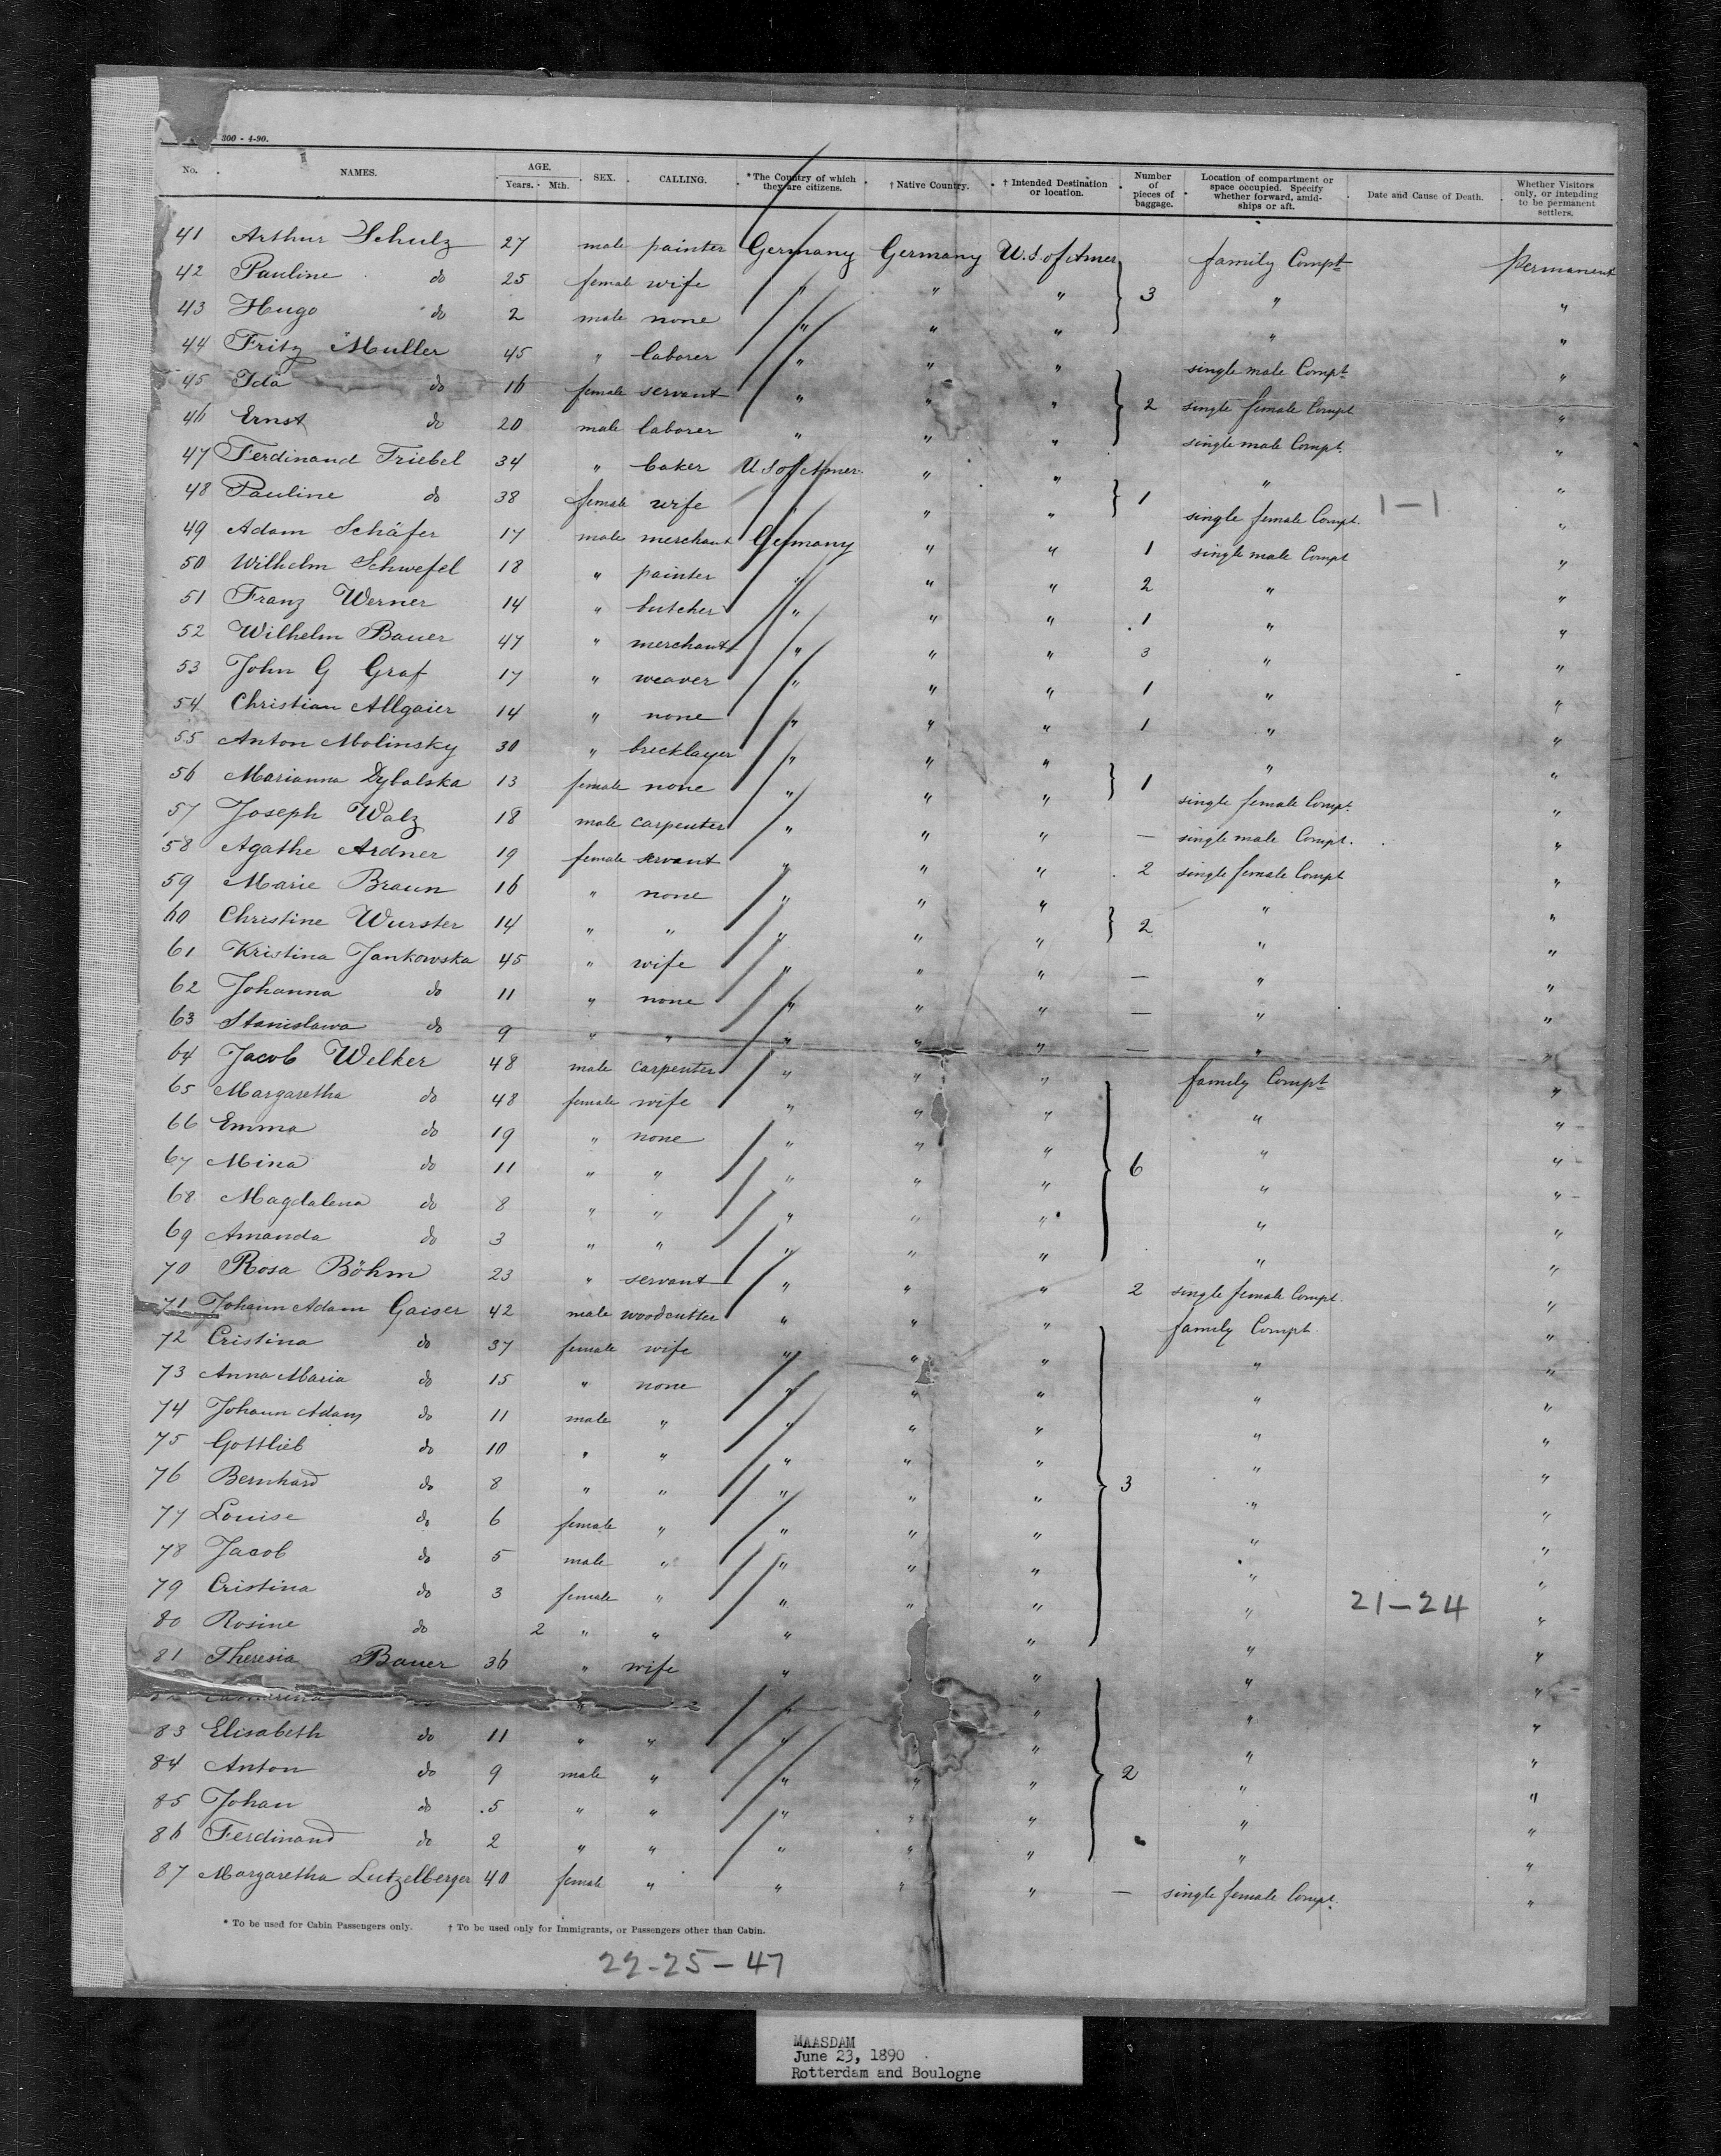 300 - 4-90.
No. NAMES. AGE. Years. Mth. SEX. CALLING. *The Country of which they are citizens. † Native Country. † Intended Destination or location. Number of pieces of baggage. Location of compartment or space occupied. Specify whether forward, amidships or aft. Date and Cause of Death. Whether Visitors only, or intending to be permanent settlers.
41 Arthur Schulz 27 male painter Germany Germany U.S. of Amer family Compt Permanent
42 Pauline do 25 female wife " " " 3 " "
43 Hugo do 2 male none " " " " "
44 Fritz Muller 45 " laborer " " " single male Compt "
45 Ida do 16 female servant " " " 2 single female Compt "
46 Ernst do 20 male laborer " " " single male Compt. "
47 Ferdinand Triebel 34 " baker U.S of Amer. " " " "
48 Pauline do 38 female wife " " 1 single female Compt. 1-1 "
49 Adam Schäfer 17 male merchant Germany " " 1 single male Compt "
50 Wilhelm Schwefel 18 " painter " " " 2 " "
51 Franz Werner 14 " butcher " " " 1 " "
52 Wilhelm Bauer 47 " merchant " " " 3 " "
53 John G Graf 17 " weaver " " " 1 " "
54 Christian Allgaier 14 " none " " " 1 " "
55 Anton Molinsky 30 " brecklayer " " " " "
56 Marianna Dybalska 13 female none " " " 1 single female Compt. "
57 Joseph Walz 18 male carpenter " " " — single male Compt. "
58 Agathe Ardner 19 female servant " " " 2 single female Compt "
59 Marie Braun 16 " none " " " " "
60 Christine Wurster 14 " " " " " 2 " "
61 Kristina Jankowska 45 " wife " " " — " "
62 Johanna do 11 " none " " " — " "
63 Stanislawa do 9 " " " " " — " "
64 Jacob Welker 48 male carpenter " " " family Compt "
65 Margaretha do 48 female wife " " " " "
66 Emma do 19 " none " " " " "
67 Mina do 11 " " " " " 6 " "
68 Magdalena do 8 " " " " " " "
69 Amanda do 3 " " " " " " "
70 Rosa Böhm 23 " servant " " " 2 single female Compt. "
71 Johann Adam Gaiser 42 male woodcutter " " " family Compt. "
72 Cristina do 37 female wife " " " " "
73 Anna Maria do 15 " none " " " " "
74 Johann Adam do 11 male " " " " " "
75 Gottlieb do 10 " " " " " " "
76 Bernhard do 8 " " " " " 3 " "
77 Louise do 6 female " " " " " "
78 Jacob do 5 male " " " " " "
79 Cristina do 3 female " " " " " 21-24 "
80 Rosine do 2 " " " " " "
81 Theresia Bauer 36 " wife " " " "
83 Elisabeth do 11 " " " " " "
84 Anton do 9 male " " " " 2 " "
85 Johan do 5 " " " " " " "
86 Ferdinand do 2 " " " " " " "
87 Margaretha Lutzelberger 40 female " " " " — single female Compt. "
* To be used for Cabin Passengers only. † To be used only for Immigrants, or Passengers other than Cabin.
22-25-47
MAASDAM
June 23, 1890
Rotterdam and Boulogne